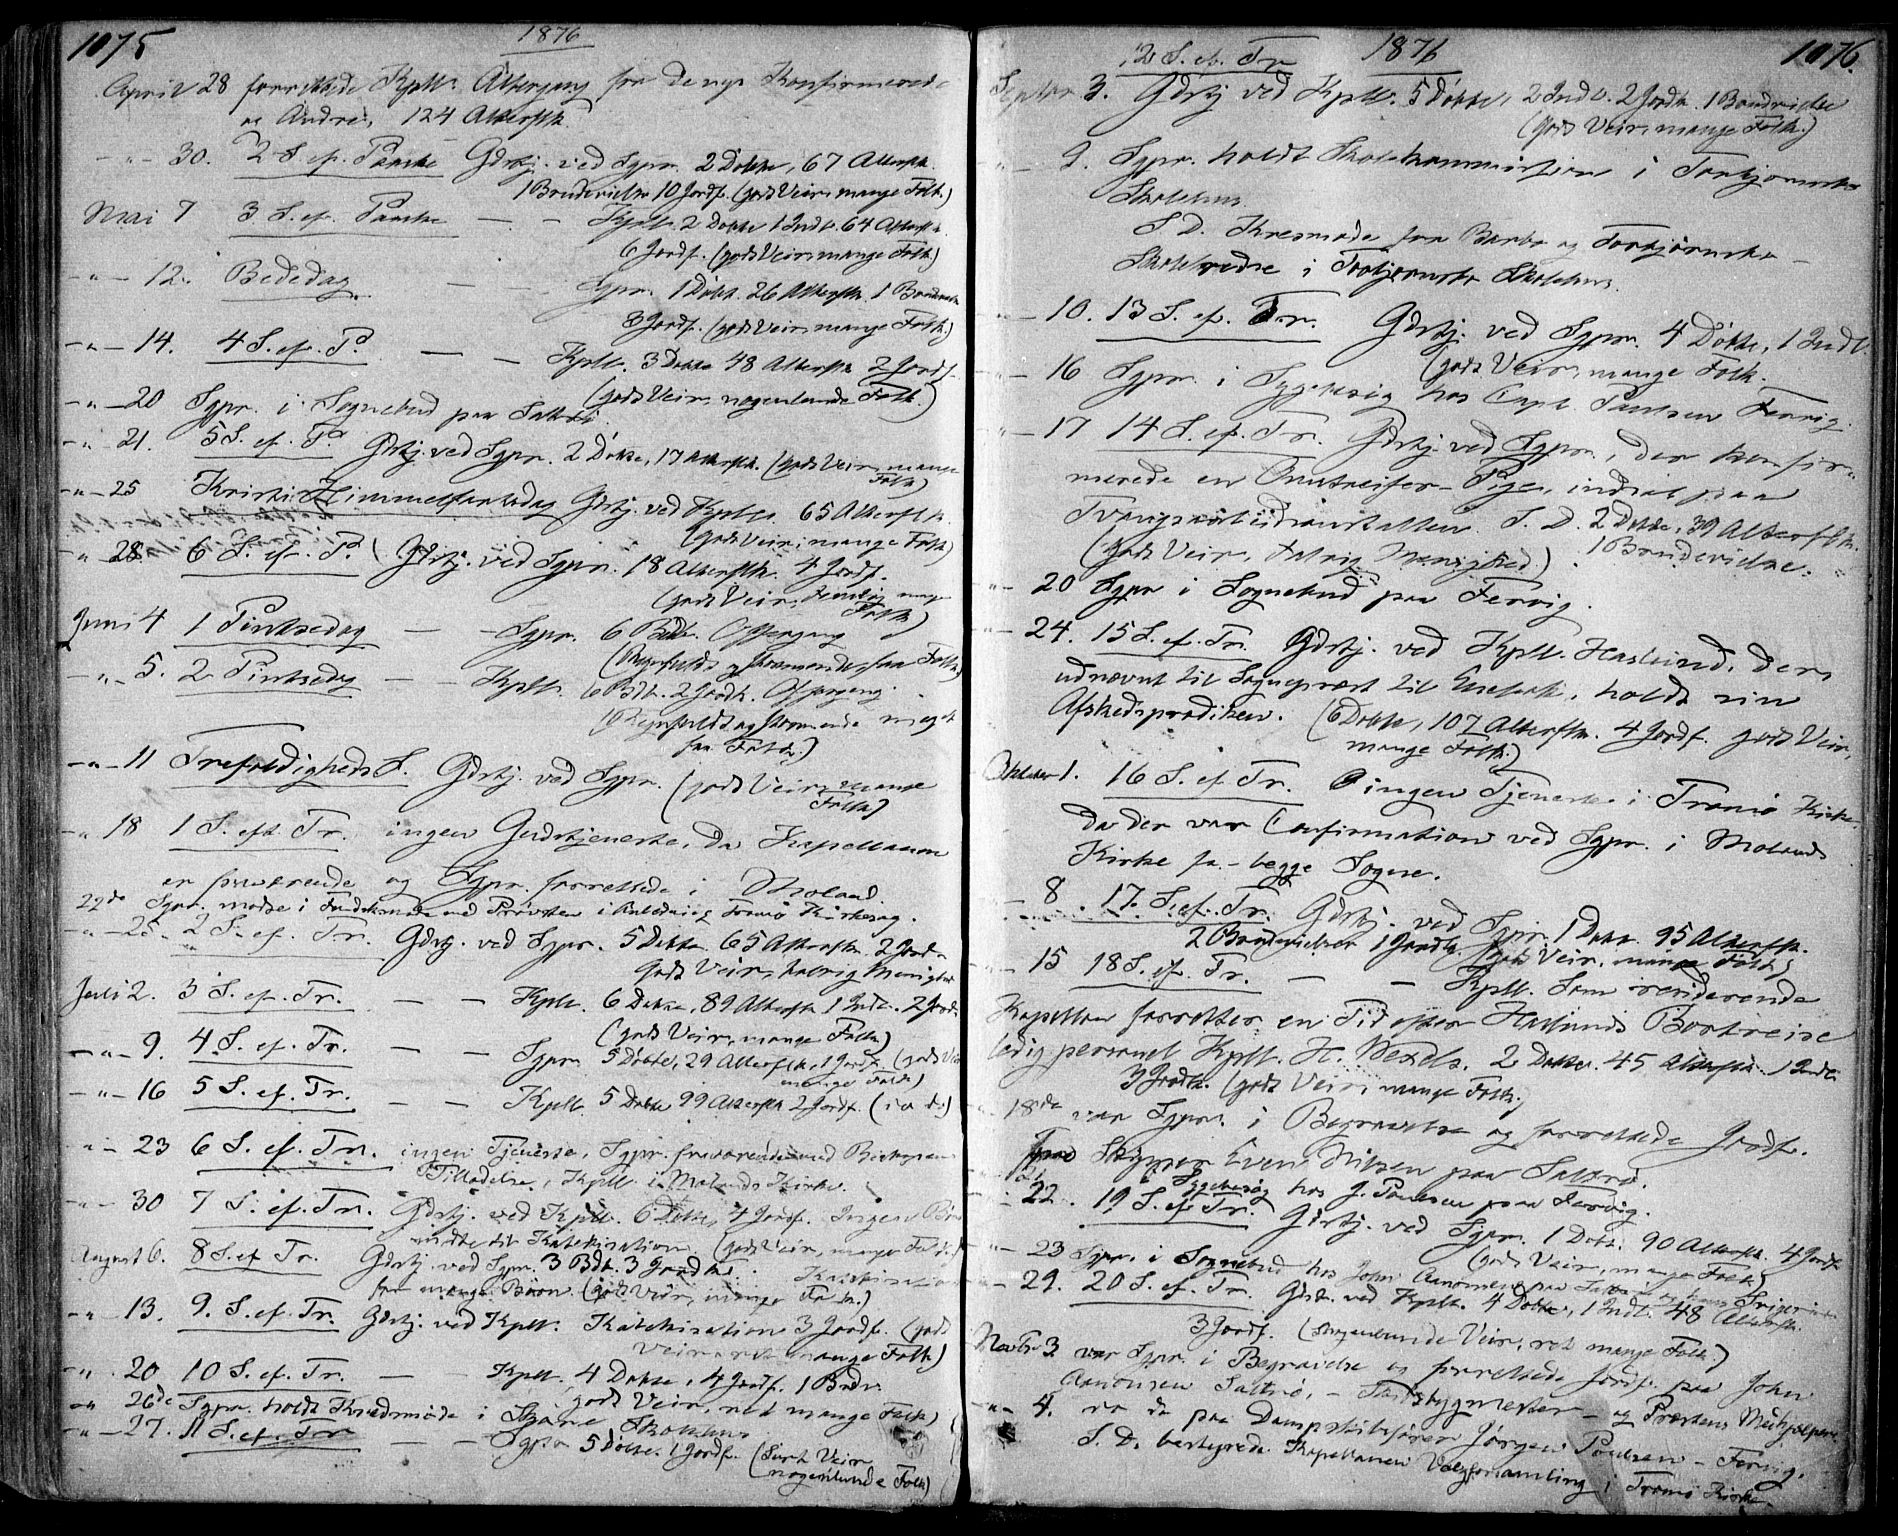 1075
1876
April 28 forrettede Kpll. Altergang for de nye Konfirmerede
og Andre, 124 Altergstr.
-"- 30. 2 S. ef. Paaske Gdstj. ved Sgpr. 2 Døbte, 67 Altergstr.
1 Brudevielse 10 Jordf. (godt Veir, mange Folk)
Mai 7 3 S. ef. Paaske — — Kpll. 2 Døbte 1 Indl. 64 Altergstr.
6 Jordf. (godt Veir, mange Folk)
-"- 12. Bededag — — Sgpr. 1 Døbt. 26 Altergstr. 1 Brudevielse
8 Jordf. (godt Veir, mange Folk)
-"- 14. 4 S. ef. P. — — Kpll. 3 Døbte 48 Altergstr. 2 Jordf.
(godt Veir, nogenlunde Folk.)
-"- 20 Sgpr. i Sognebud paa Saltrø.
-"- 21. 5 S. ef. P. Gdstj. ved Sgpr. 2 Døbte, 17 Altergstr. (godt Veir, mange
Folk)
-"- 25 Kristi Himmelfartsdag Gdstj. ved Kpll. 65 Altergstr.
(godt Veir, mange Folk)
-"- 28. 6 S. ef. P. Gdstj. ved Sgpr. 18 Altergstr. 4 Jordf.
(godt Veir, temlig mange
Folk)
Juni 4 1 Pintsedag — — Sgpr. 6 Bdt. Offergang
(Regnfuldt og strømmende, faa Folk)
-"- 5. 2 Pintsedag — — Kpll. 6 Bdt. 2 Jordk. Offergang.
(Regnfuldt og strømmende meget
faa Folk.)
-"- 11 Trefoldigheds S. Gdstj. ved Sgpr. (godt Veir, mange
Folk)
-"- 18 1 S. eft. Tr. ingen Gudstjeneste, da Kapellanen
er fraværende og Sgpr. forrettede i Moland.
22de Sgpr. møtte i med Provsten i Anledning Tromø Kirkesag.
-"- 25. 2 S. ef. Tr. Gdstj. ved Sgpr. 5 Døbte. 65 Altergstr. 2 Jordf.
Godt Veir, talrig Menighed
Juli 2. 3 S. ef. Tr. — — Kpll. 6 Døbte, 89 Altergstr. 1 Indl. 2 Jordf.
(godt Veir, mange Folk)
-"- 9. 4 S. ef. Tr. — Sgpr. 5 Døbte, 29 Altergstr. 1 Jordf. (godt Veir
mange Folk)
-"- 16 5 S. ef. Tr. — — Kpll. 5 Døbte 99 Altergstr. 2 Jordf. (
-"- 23 6 S. ef. Tr. ingen Tjeneste, Sgpr. fraværende med Biskopens
Tilladelse, Kpll. i Molands Kirke.
-"- 30 7 S. ef. Tr. Gdstj. ved Kpll. 6 Døbte, 4 Jordf. Ingen Børn
mødte til Katekisation. (godt Veir, mange Folk.)
August 6. 8 S. ef Tr. Gdstj. ved Sgpr. 3 Bdt. 3 Jordk. Katekisation
for mange Børn (godt Veir, mange Folk.)
-"- 13. 9. S. ef. Tr. Gdstj. ved Kpll. Katekisation 3 Jordf. (godt
Veir, ret mange Folk)
-"- 20 10 S. ef. Tr. — — Kpll. 4 Døbte, 4 Jordf. 1 Brdv.
godt Veir, ret mange Folk)
-"- 26de Sgpr. holdt Kredsmøde i Skolehus
-"- 27. 11 S. ef. Tr. — — Sgpr 5 Døbte. 1 Jordf. (Surt Veir
nogenlunde Folk)
1876
1076.
12 S. ef. Tr
Septbr 3. Gdstj ved Kpll. 5 Døbte, 2 Indl. 2 Jordk. 1 Brudvielse
(godt Veir, mange Folk.)
-"- 9. Sgpr. holdt Skolekommission i Torbjørnsbo
Skolehus.
S. D. Kredsmøde for Barbo og Torbjørnsbo
Skolekredse i Torbjørnsbo Skolehus.
-"- 10. 13 S. ef. Tr. Gdstj. ved Sgpr. 4 Døbte, 1 Indl.
(godt Veir, mange Folk.
-"- 16 Sgpr. i Sygebesøg hos Capt. Paulsen Fervig.
-"- 17 14 S. ef. Tr. Gdstj. ved Sgpr., der konfir-
merede en Omstreifer-Pige, indsat paa
Tvangsarbeidsanstalten. S. D. 2 Døbte, 39 Altergstr.
(godt Veir, talrig Menighed) 1 Brudevielse.
-"- 20 Sgpr i Sognebud paa Fervig.
-"- 24. 15 S. ef. Tr. Gdstj. ved Kpll. Haslund, der,
udnævnt til Sogneprest til holdt sin
Afskedsprædiken. (6 Døbte, 107 Altergstr. 4 Jordf. godt Veir,
mange Folk.)
Oktober 1. 16 S. ef. Tr. ingen Tjeneste i Tromø Kirke,
da der var Confirmation ved Sgpr. i Molands
Kirke fo- begge Sogne.
-"- 8. 17. S. ef. Tr. Gdstj. ved Sgpr. 1 Døbt. 95 Altergstr.
2 Brudevielser 1 Jordk. (godt Veir, mange Folk)
-"- 15 18 S. ef. Tr. — — Kpll. Som residerende
Kapellan forretter en Tid efter Haslunds Bortreise
ledig personel Kpll. H. Wexels. 2 Døbte. 45 Altergstr. 1 Indl.
3 Jordk. (godt Veir, mange Folk)
-"- 18de var Sgpr. i Begravelse og forrettede Jordf.
Skipper Even Nilsen paa Saltrø.
21. i Sygebesøg hos J. Paulsen paa Fervig.
22. 19 S. ef. Tr. Gdstj. ved Sgpr. 1 Døbt. 90 Altergstr. 4 Jordf.
(godt Veir, mange Folk)
-"- 23 Sgpr. i Sognebud hos John Aanonsen paa Saltrø
-"- 29. 20 S. ef. Tr. Gdstj. ved Kpll. 4 Døbte, 1 Indl. 48 Altergstr.
3 Jordf. (Nogenlunde Veir, ret mange Folk)
Novbr 3. var Sgpr. i Begravelse og forrettede Jordf. paa John
Aanonsen Saltrø, - og Præstens Medhjelper.
-"- 4. paa Dampskibsfører Jørgen Paulsen - Fervig.
S. D. bestyrede Kapellanen Valgforsamling i Tromø Kirke.